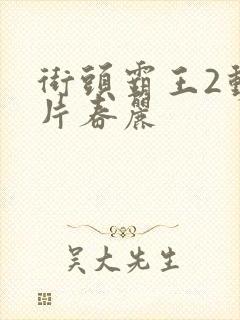 街頭霸王2動
片春麗
吳大先生